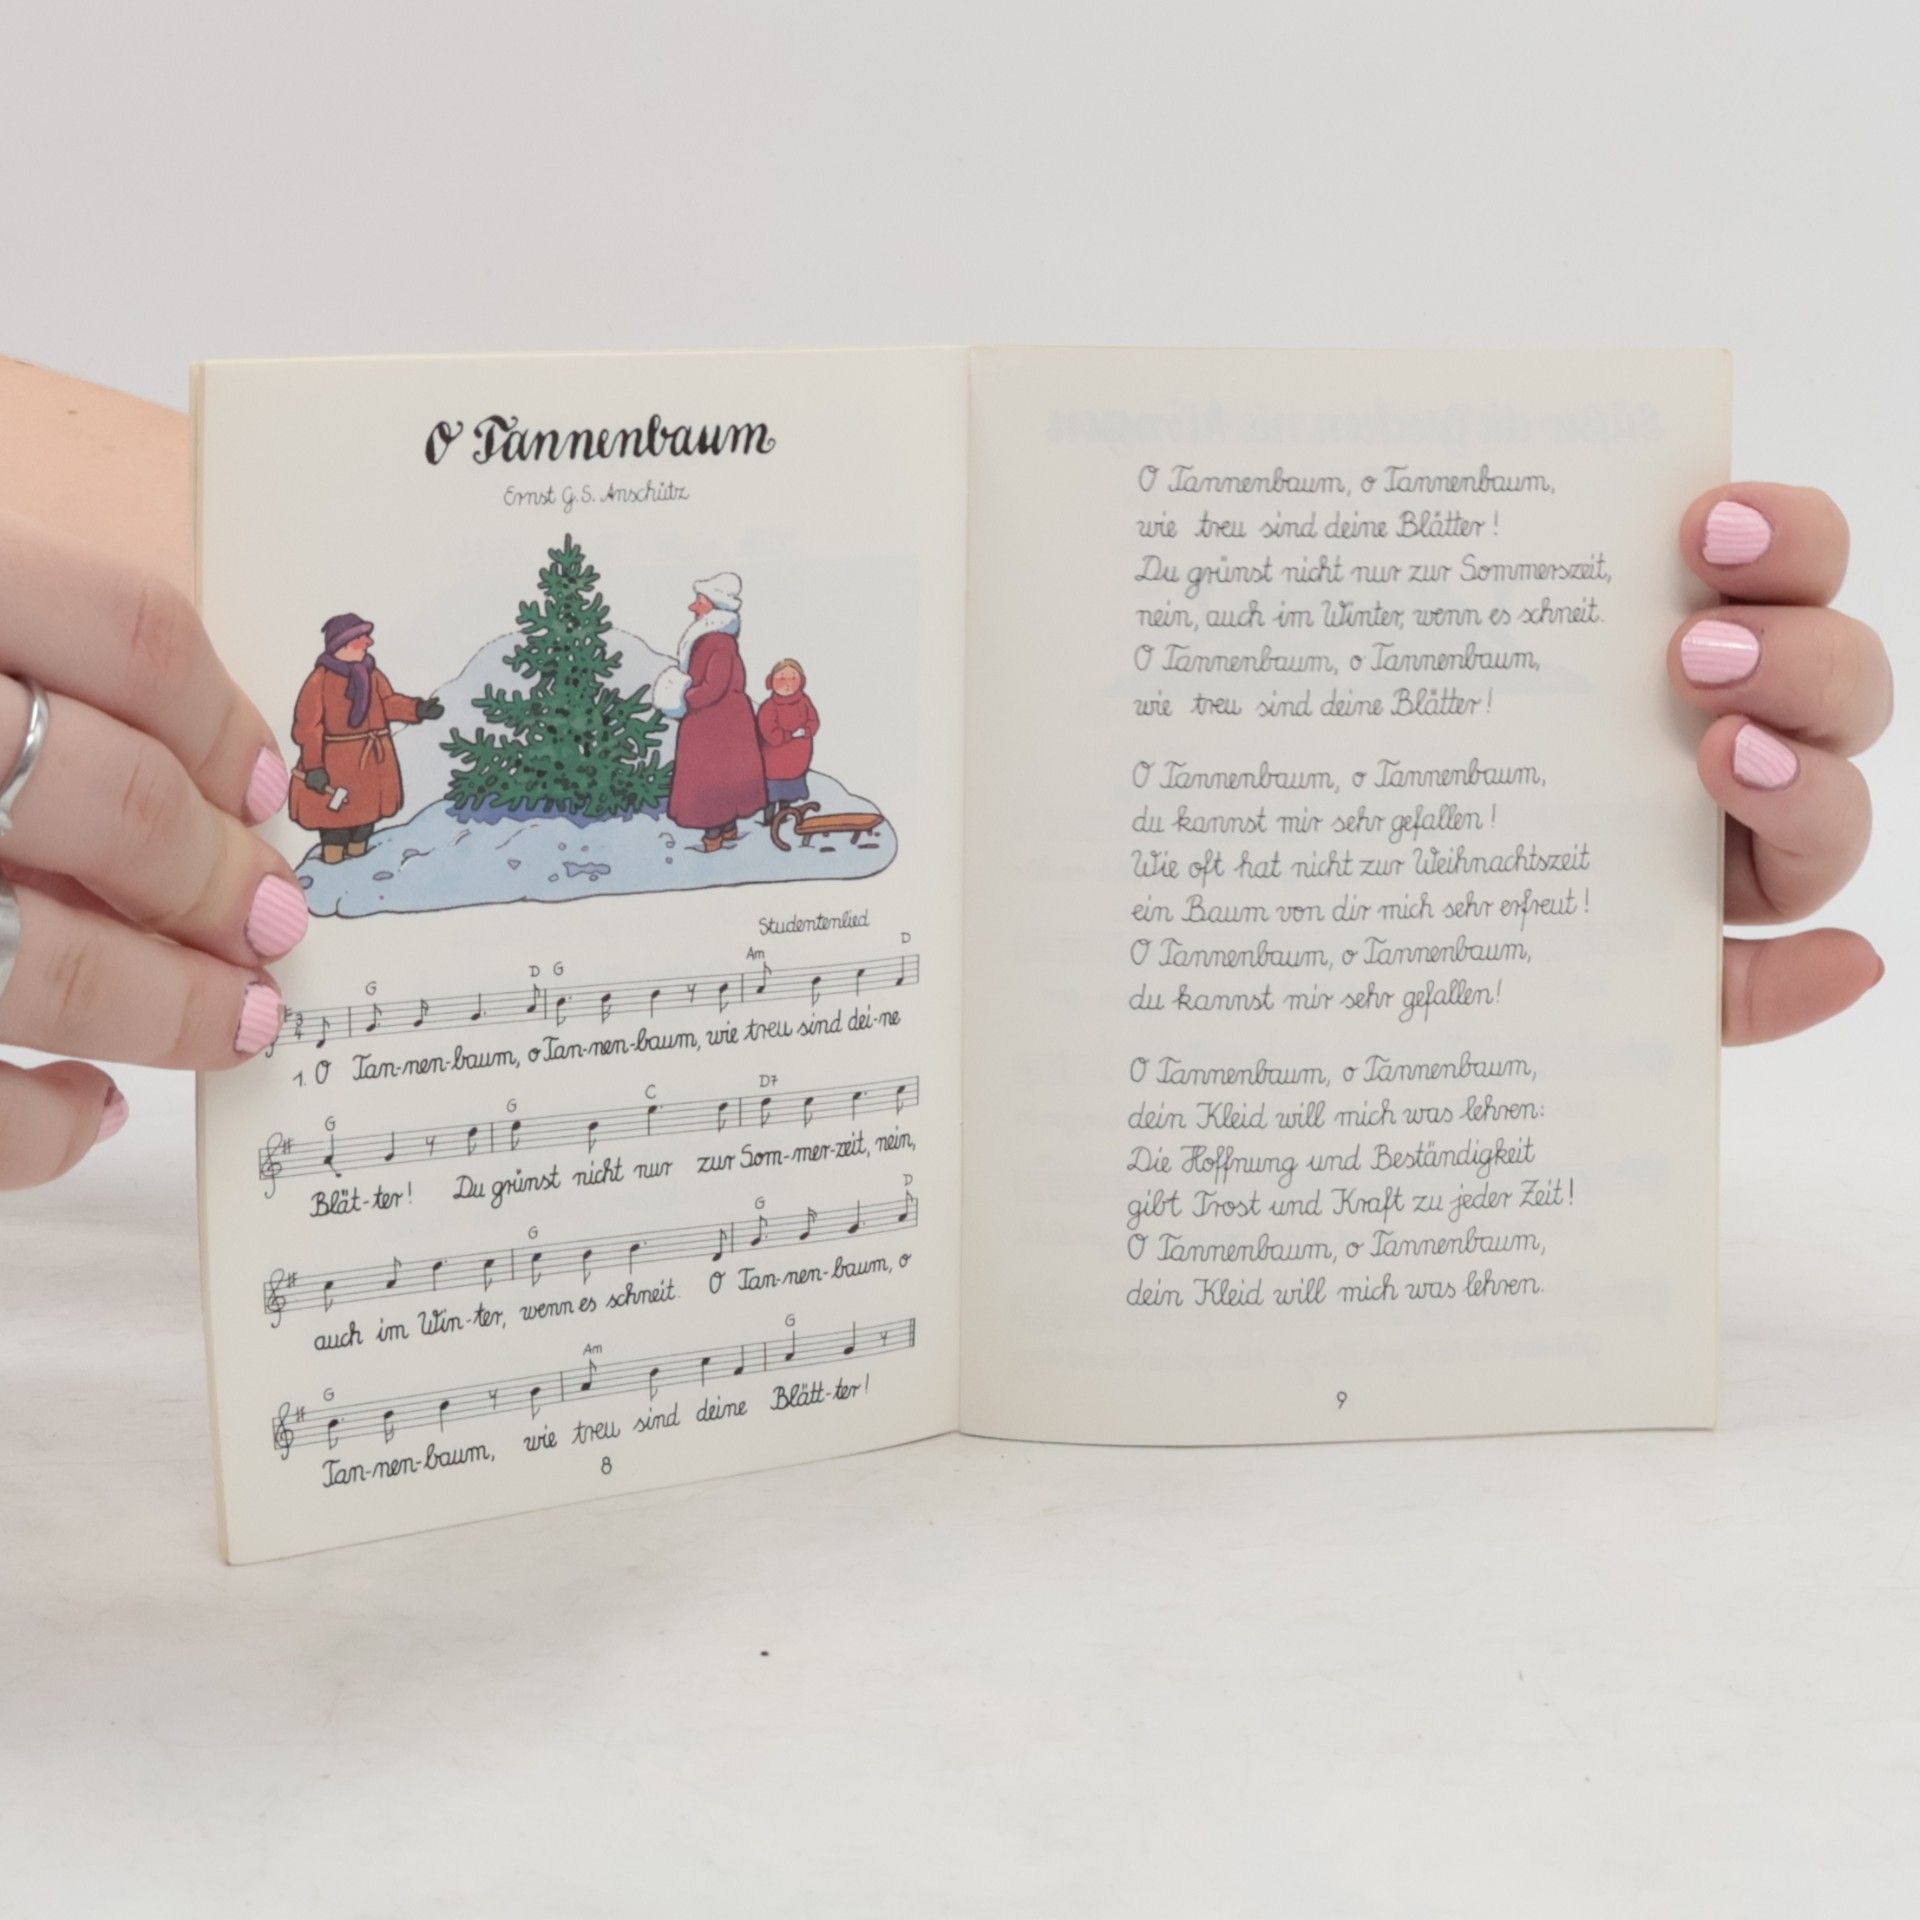 O Tannenbaum
Ernst G.S. Anschütz
Studentenlied
G D G Am D
3
4
1. O Tan-nen-baum, o Tan-nen-baum, wie treu sind dei-ne
G G C D7
Blät-ter! Du grünst nicht nur zur Som-mer-zeit, nein,
G G D
auch im Win-ter, wenn es schneit. O Tan-nen-baum, o
G Am G
Tan-nen-baum, wie treu sind deine Blätt-ter!
8
O Tannenbaum, o Tannenbaum,
wie treu sind deine Blätter!
Du grünst nicht nur zur Sommerszeit,
nein, auch im Winter, wenn es schneit.
O Tannenbaum, o Tannenbaum,
wie treu sind deine Blätter!
O Tannenbaum, o Tannenbaum,
du kannst mir sehr gefallen!
Wie oft hat nicht zur Weihnachtszeit
ein Baum von dir mich sehr erfreut!
O Tannenbaum, o Tannenbaum,
du kannst mir sehr gefallen!
O Tannenbaum, o Tannenbaum,
dein Kleid will mich was lehren:
Die Hoffnung und Beständigkeit
gibt Trost und Kraft zu jeder Zeit!
O Tannenbaum, o Tannenbaum,
dein Kleid will mich was lehren.
9